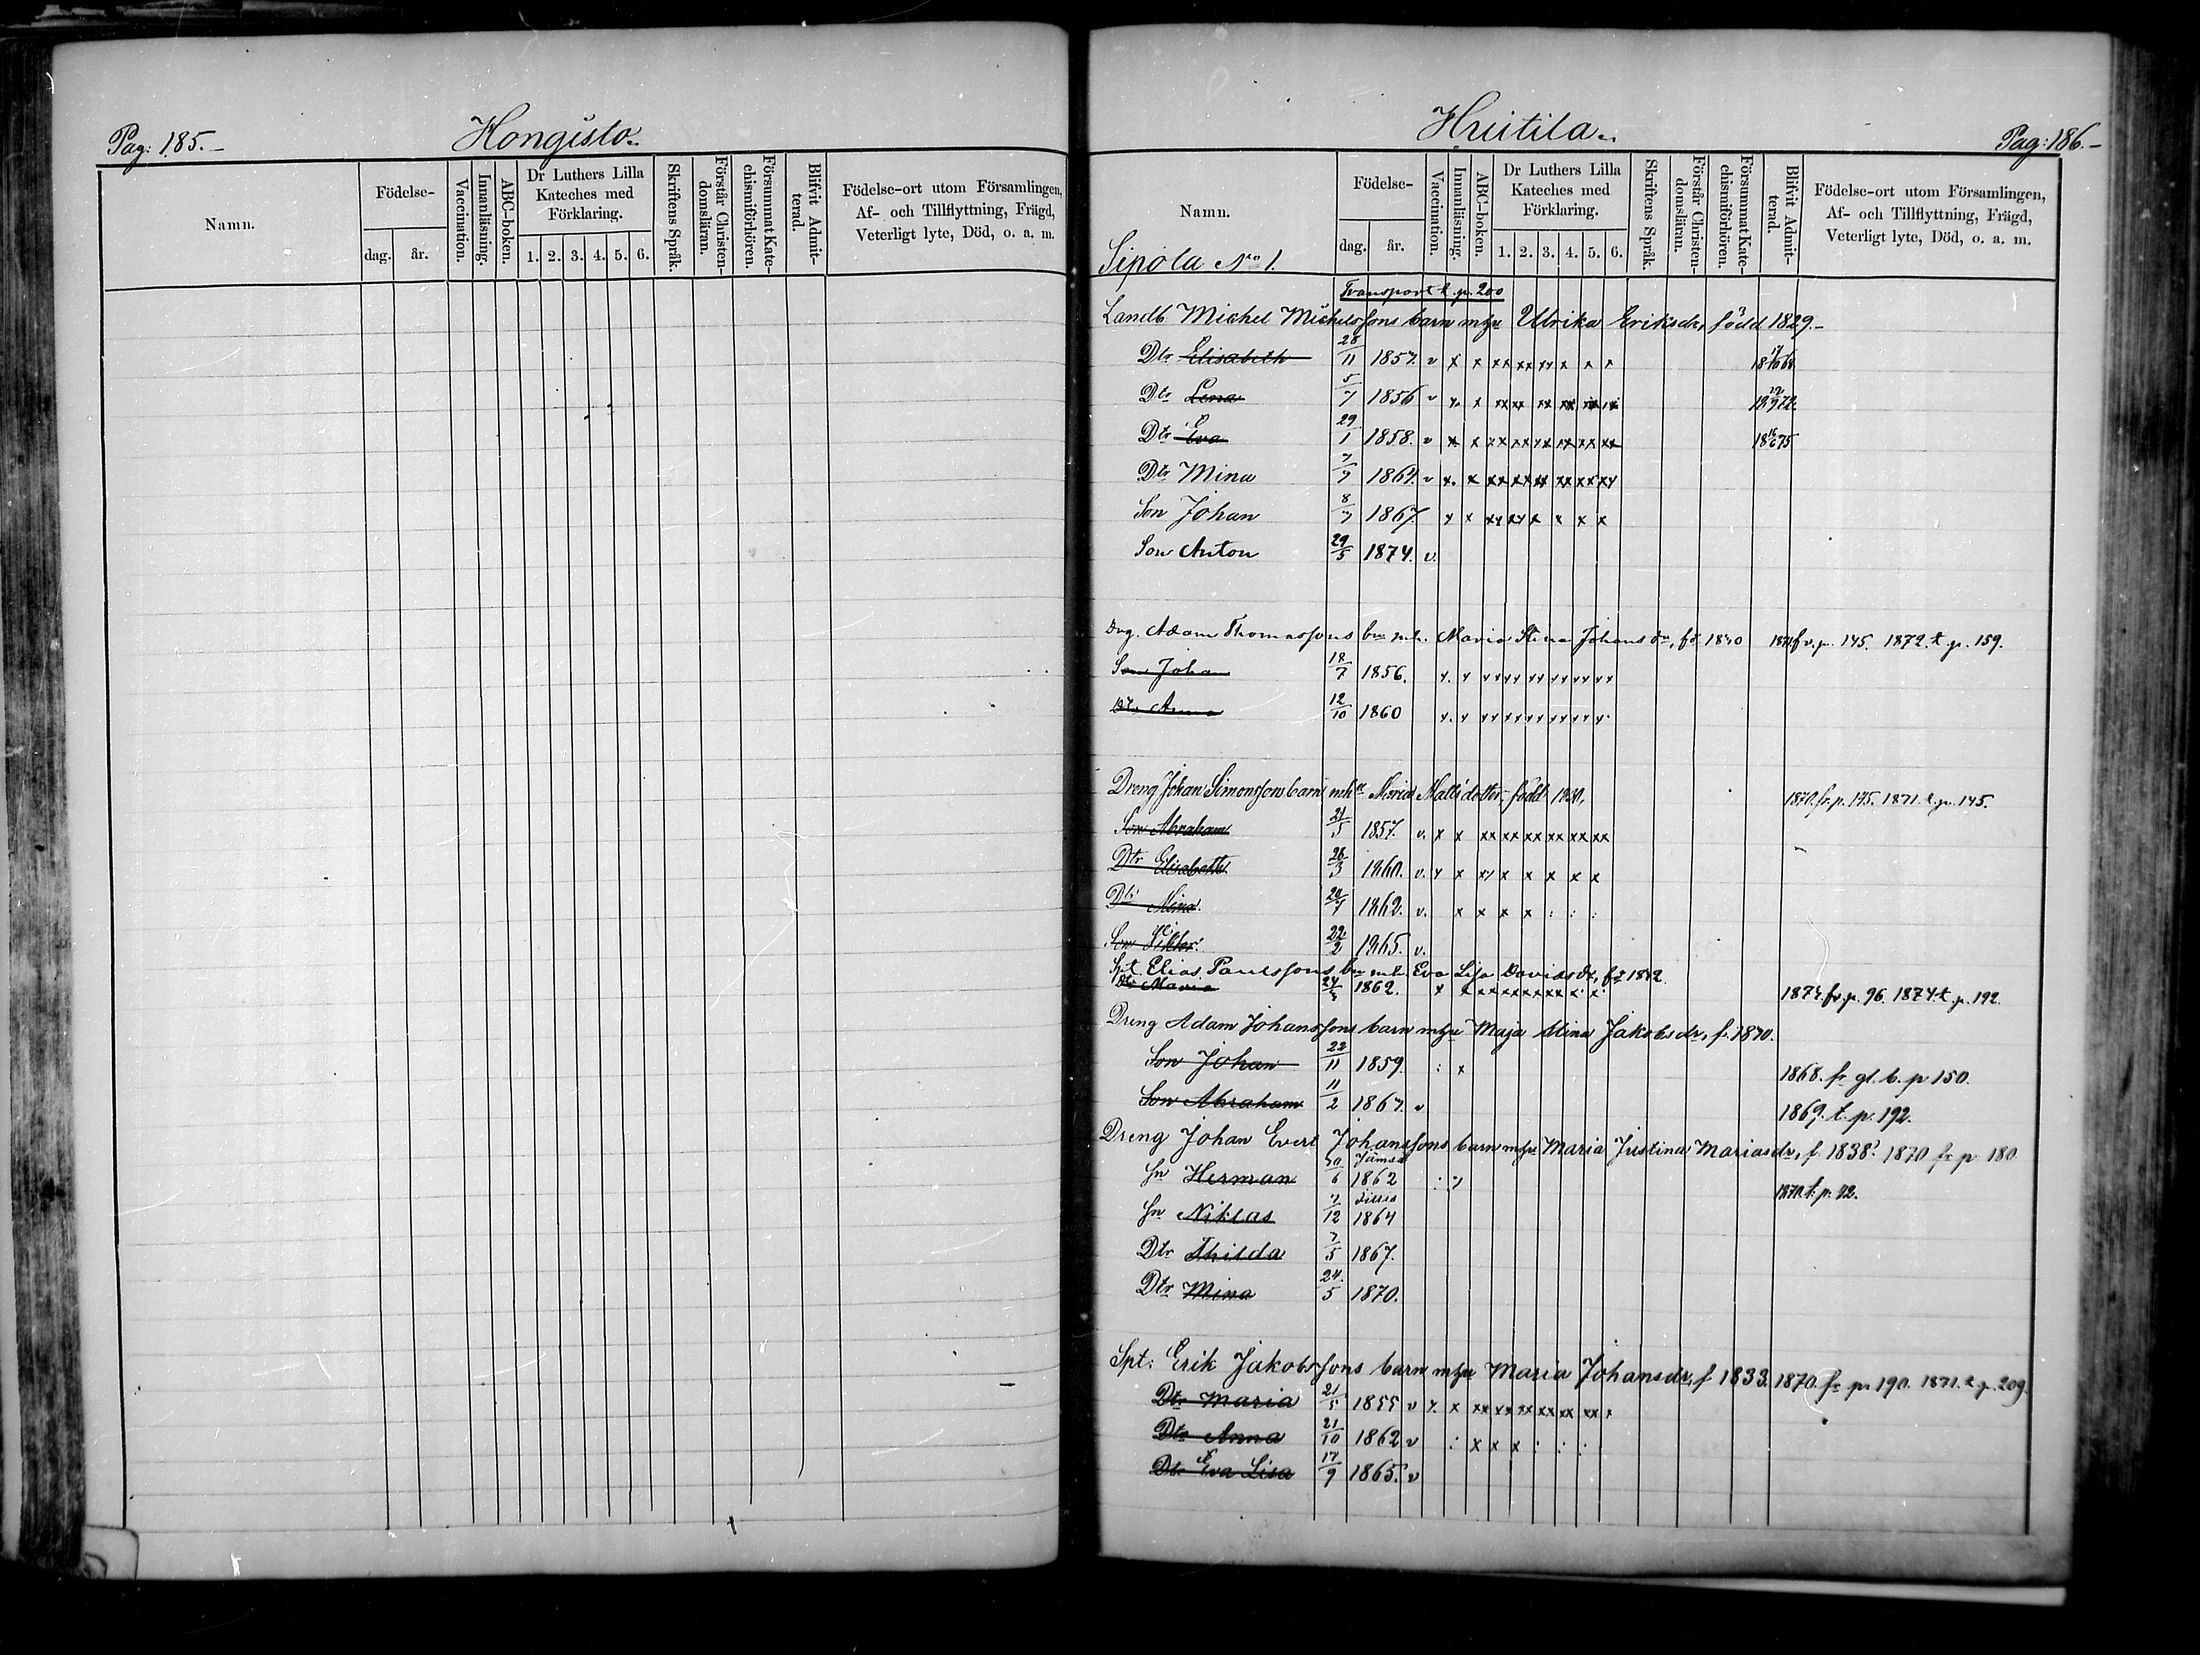 Pag: 185.-
Hongisto.
Namn.
Födelse-
dag.
år.
Vaccination.
Innanläsning.
ABC-boken.
Dr Luthers Lilla
Kateches med
Förklaring.
1. 2. 3. 4. 5. 6.
Skriftens Språk.
Förstår Christen-
domsläran.
Försummat Kate-
chismiförhören.
Blifvit Admit-
terad.
Födelse-ort utom Församlingen,
Af- och Tillflyttning, Frägd,
Veterligt lyte, Död, o. a. m.
Huitila.
Pag: 186.-
Namn.
Sipola No 1.
Födelse-
dag.
år.
Vaccination.
Innanläsning.
ABC-boken.
Dr Luthers Lilla
Kateches med
Förklaring.
1. 2. 3. 4. 5. 6.
Skriftens Språk.
Förstår Christen-
domsläran.
Försummat Kate-
chismiförhören.
Blifvit Admit-
terad.
Födelse-ort utom Församlingen,
Af- och Tillflyttning, Frägd,
Veterligt lyte, Död, o. a. m.
Transport t. p. 200
Landb Michel Michelssons barn mhu Ulrika Eriksdr, född 1829.-
Dtr Elisabeth 28/11 1851. v x x xx xx xx x x x
Dtr Lena 5/7 1856 v x x xx xx xx xx xx xx
Dtr Eva 29/1 1858. v x x xx xx xx xx xx xx 18 16/6 75
Dtr Mina 7/9 1864. v x. x xx xx xx xx xx xx
Son Johan 8/7 1867. x x xx xx x x x x
Son Anton 29/5 1874. v.
Drg. Adam Thomassons bn mh. Maria Stina Johansdr, fd 1830 1871 fr. p. 145. 1872. t. p. 159.
Son Johan 18/7 1856. x. x xx xx xx xx xx xx
Dtr Anna 12/10 1860 x. x xx xx xx xx xx x.
Dreng Johan Simonssons barn mh Maria Mattsdotter, född 1830. 1870. fr. p. 175. 1871. t. p. 145.
Son Abraham 21/5 1857. v. x x xx xx xx xx xx xx
Dtr Elisabeth. 26/3 1860. v. x x xx x x x x x
Dtr Mina. 24/7 1862. v. x x x x : : :
Son Viktor. 22/2 1865. v.
Spt. Elias Paulssons bn mh. Eva Lisa Davidsdr, fd 1832
Dtr Maria 24/3 1862. x x xx xx xx xx x x 1874. fr. p. 96. 1874 t. p. 192.
Dreng Adam Johanssons barn mhu Maja Stina Jakobsdr, f. 1830.
Son Johan 22/11 1859. : x 1868. fr gl. b. p 150.
Son Abraham 11/2 1867. v 1869. t. p. 192.
Dreng Johan Evert Johanssons barn mhu Maria Justina Mariasdr, f. 1838. 1870 fr p 180
Jämsä
Sn Herman 30/6 1862 : x 1870. t. p. 42.
Sn Niklas 7/12 1864
Dtr Thilda 7/5 1867.
Dtr Mina 24/5 1870.
Spt: Erik Jakobssons barn mhu Maria Johansdr, f 1833. 1870. fr p. 190. 1871. t. p. 209.
Dtr Maria 21/5 1855 v x. x xx xx xx xx xx xx x
Dtr Anna 21/10 1862 v : x x x : : :
Dtr Eva Lisa 17/9 1865. v